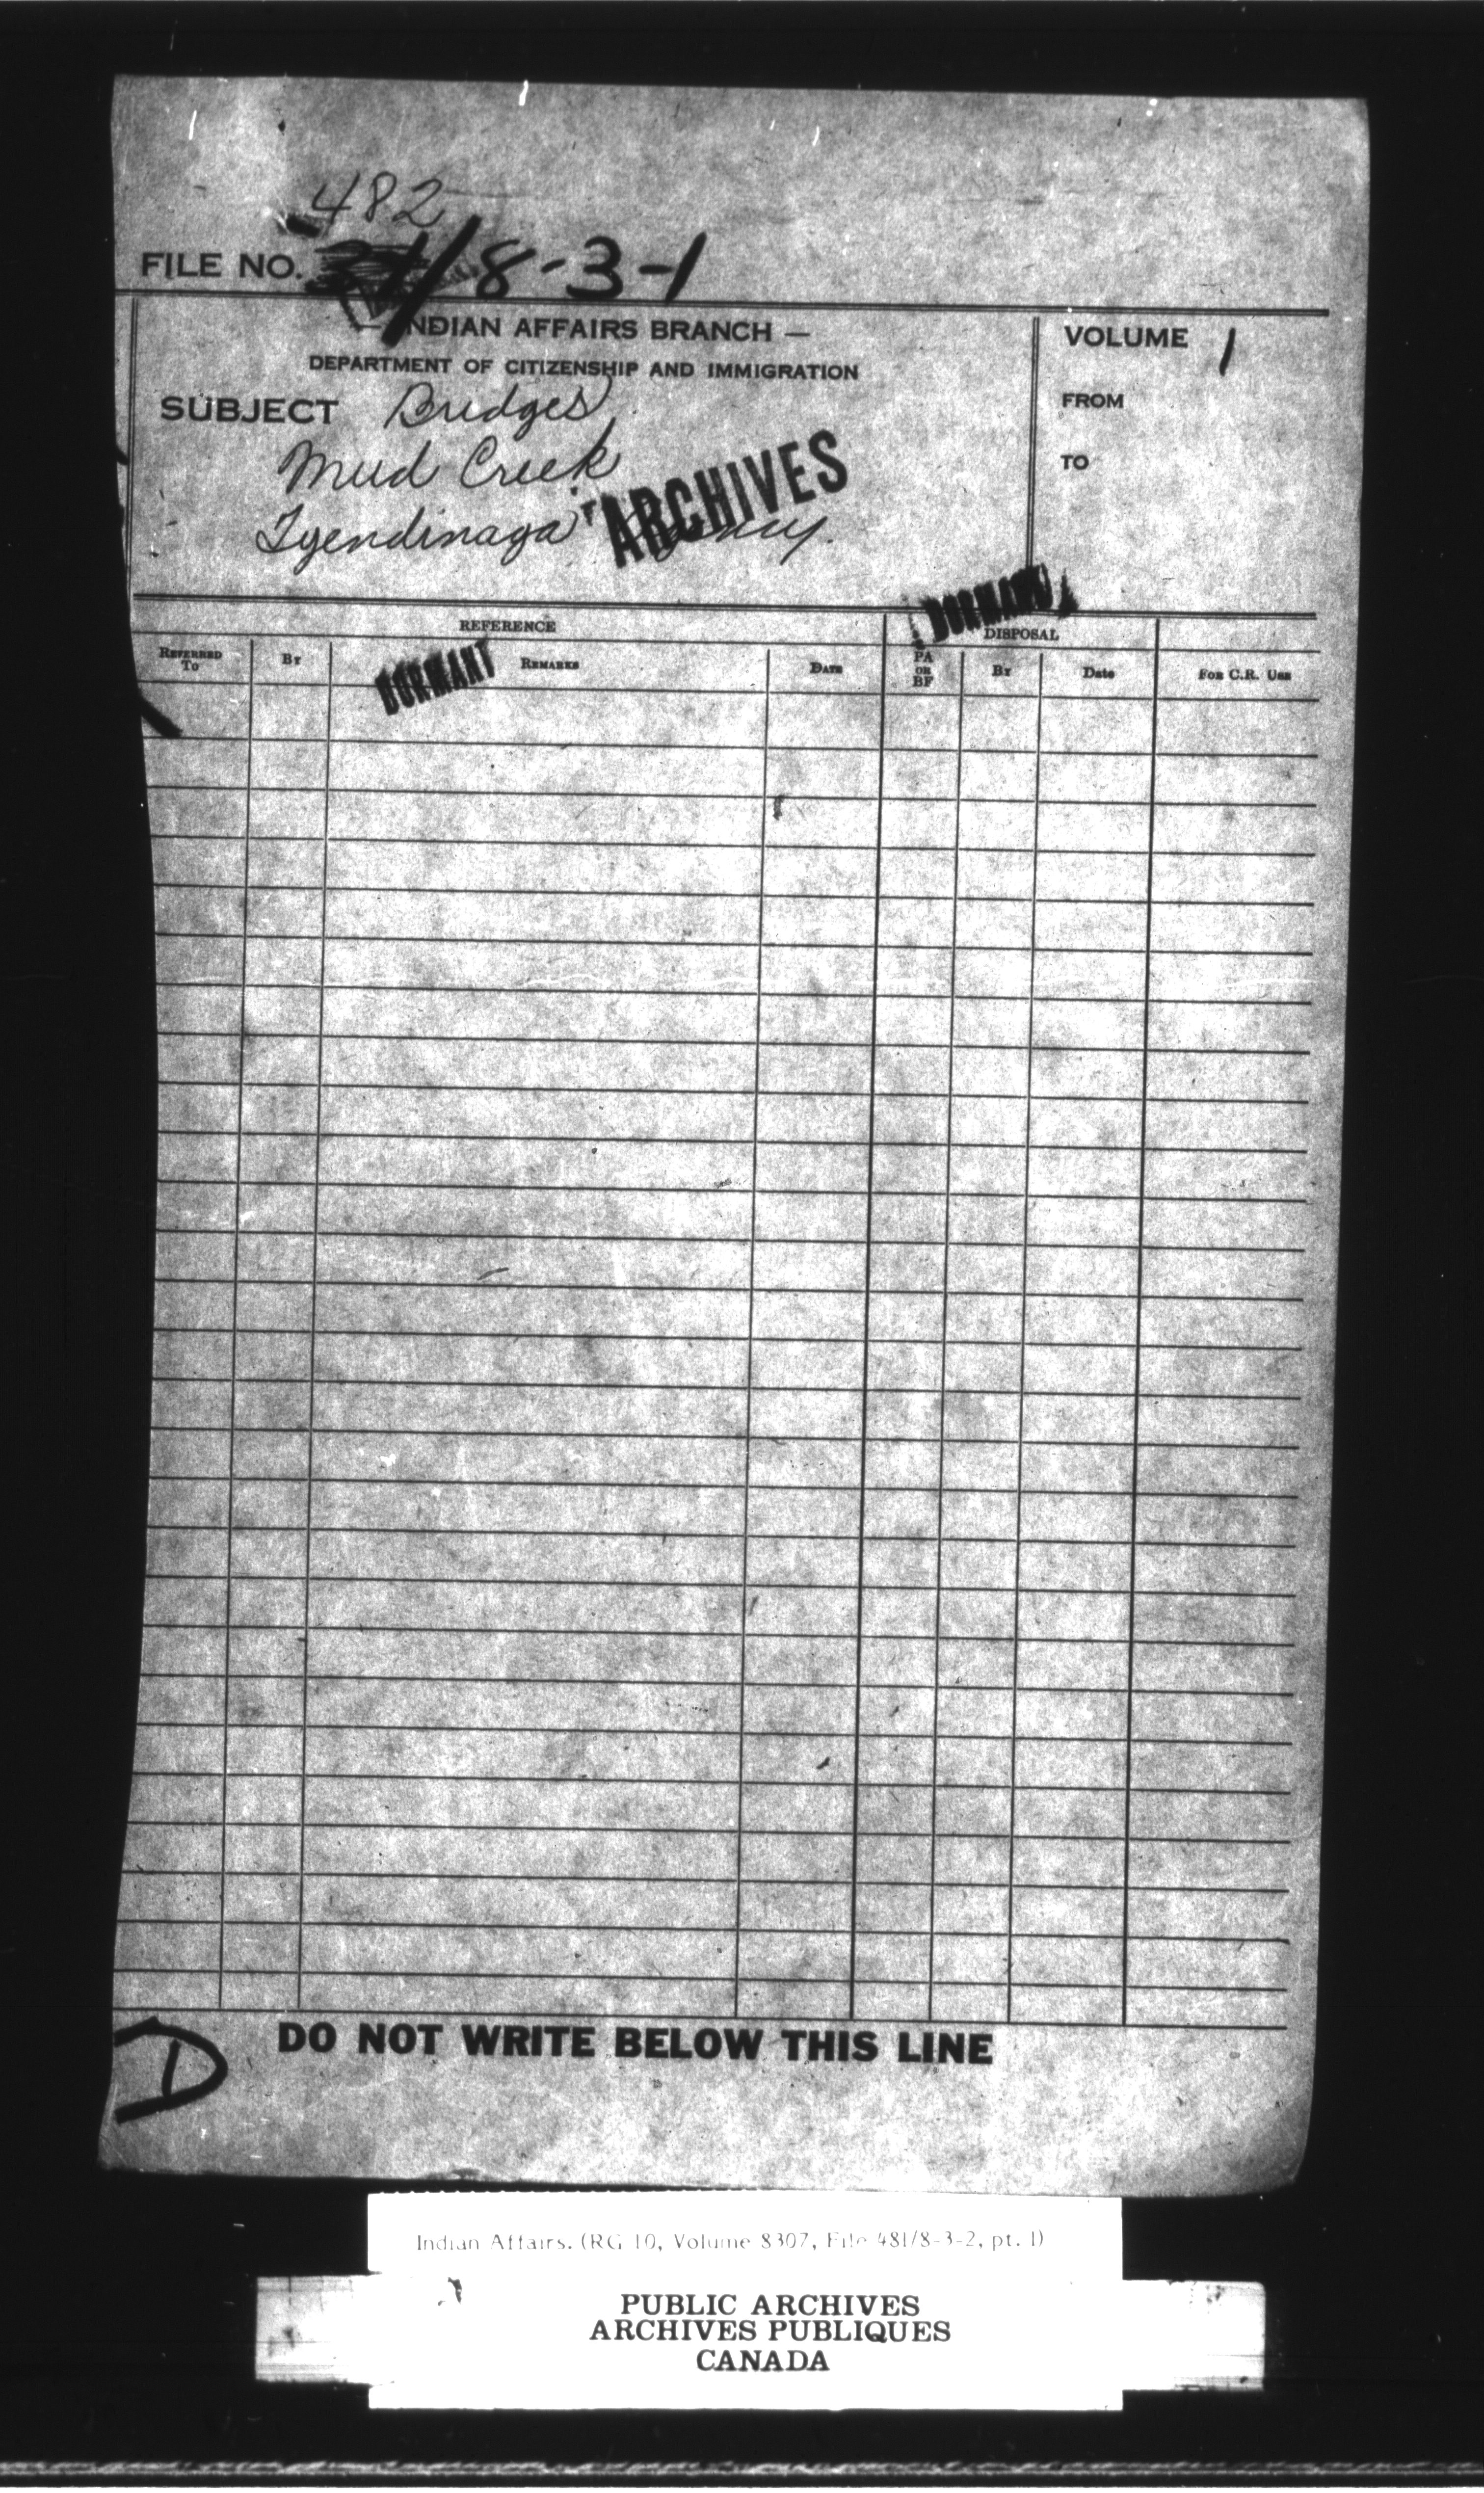 482
FILE NO. /8-3-1
INDIAN AFFAIRS BRANCH —
DEPARTMENT OF CITIZENSHIP AND IMMIGRATION
VOLUME 1
SUBJECT Bridges
FROM
Mud Creek
TO
Tyendinaga Agency.
ARCHIVES
DORMANT
REFERENCE
DISPOSAL
REFERRED TO
BY
REMARKS
DATE
PA OR BF
BY
Date
FOR C.R. USE
DORMANT
DO NOT WRITE BELOW THIS LINE
D
Indian Affairs. (RG 10, Volume 8307, File 481/8-3-2, pt. 1)
PUBLIC ARCHIVES
ARCHIVES PUBLIQUES
CANADA